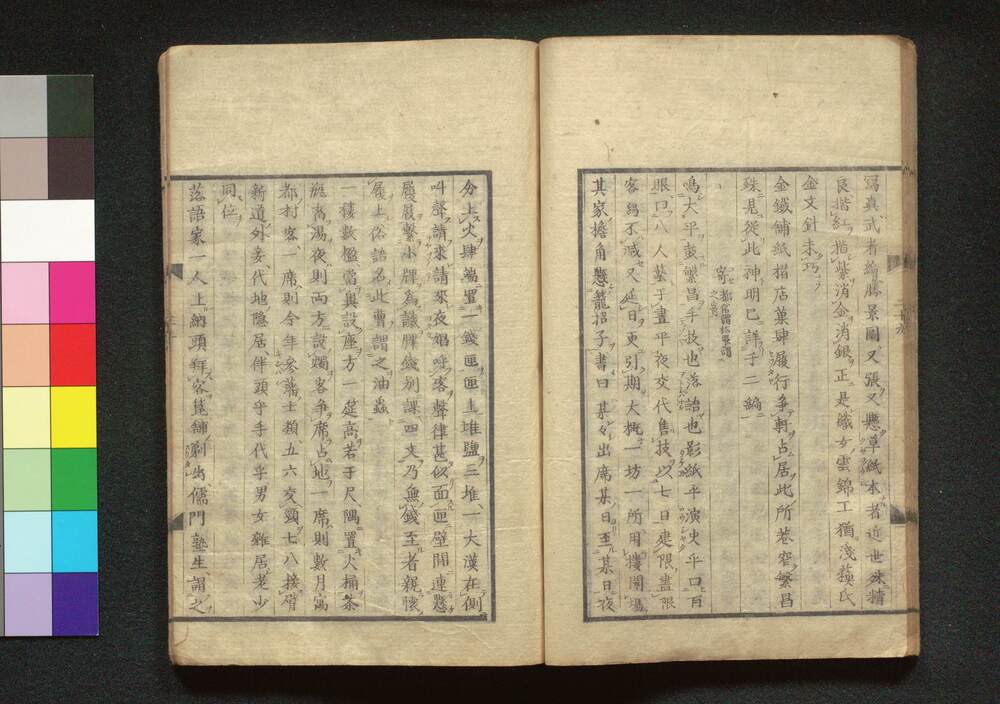 寫真武者綸勝景圖又張又懸草紙本者近世殊精
良揩紅揩紫消金消銀正是織女雲錦工猶淺蘇氏
金文針未巧
金鐵鋪紙招店菓肆履行爭軒占居此所巷窄繁昌
殊見從此神明已詳于二編
寄 都俗謂招累謂之寄
鳴太平鼓繁昌手技也落語也影紙乎演史乎口百
眼口八人藝于晝乎夜交代售技以七日建限盡限
客尚不減又延日更引期大概一坊一所用樓開場
其家檐角懸籠招子書曰某々出席某日至某日夜
分上火肆端置一錢匣匣上堆鹽三堆一大漢在側
叫聲請來請來夜娼呼客聲律甚似面匣壁間連懸
履屐繫小牌為識牌錢別課四文乃無錢至者親懷
履上俗語名此曹謂之油蟲
一樓數楹當奥設座方一筵高若干尺隅置火桶茶
瓶蓄湯夜則兩方設燭客爭席占地一席則數月寓
都村客一席則今年參藩士類五六交頸七八接臂
新道外妾代地隱居伴頭乎手代乎男女雜居老少
同位
落語家一人上納頭拜客篦鋪剃出儒門塾生謂之